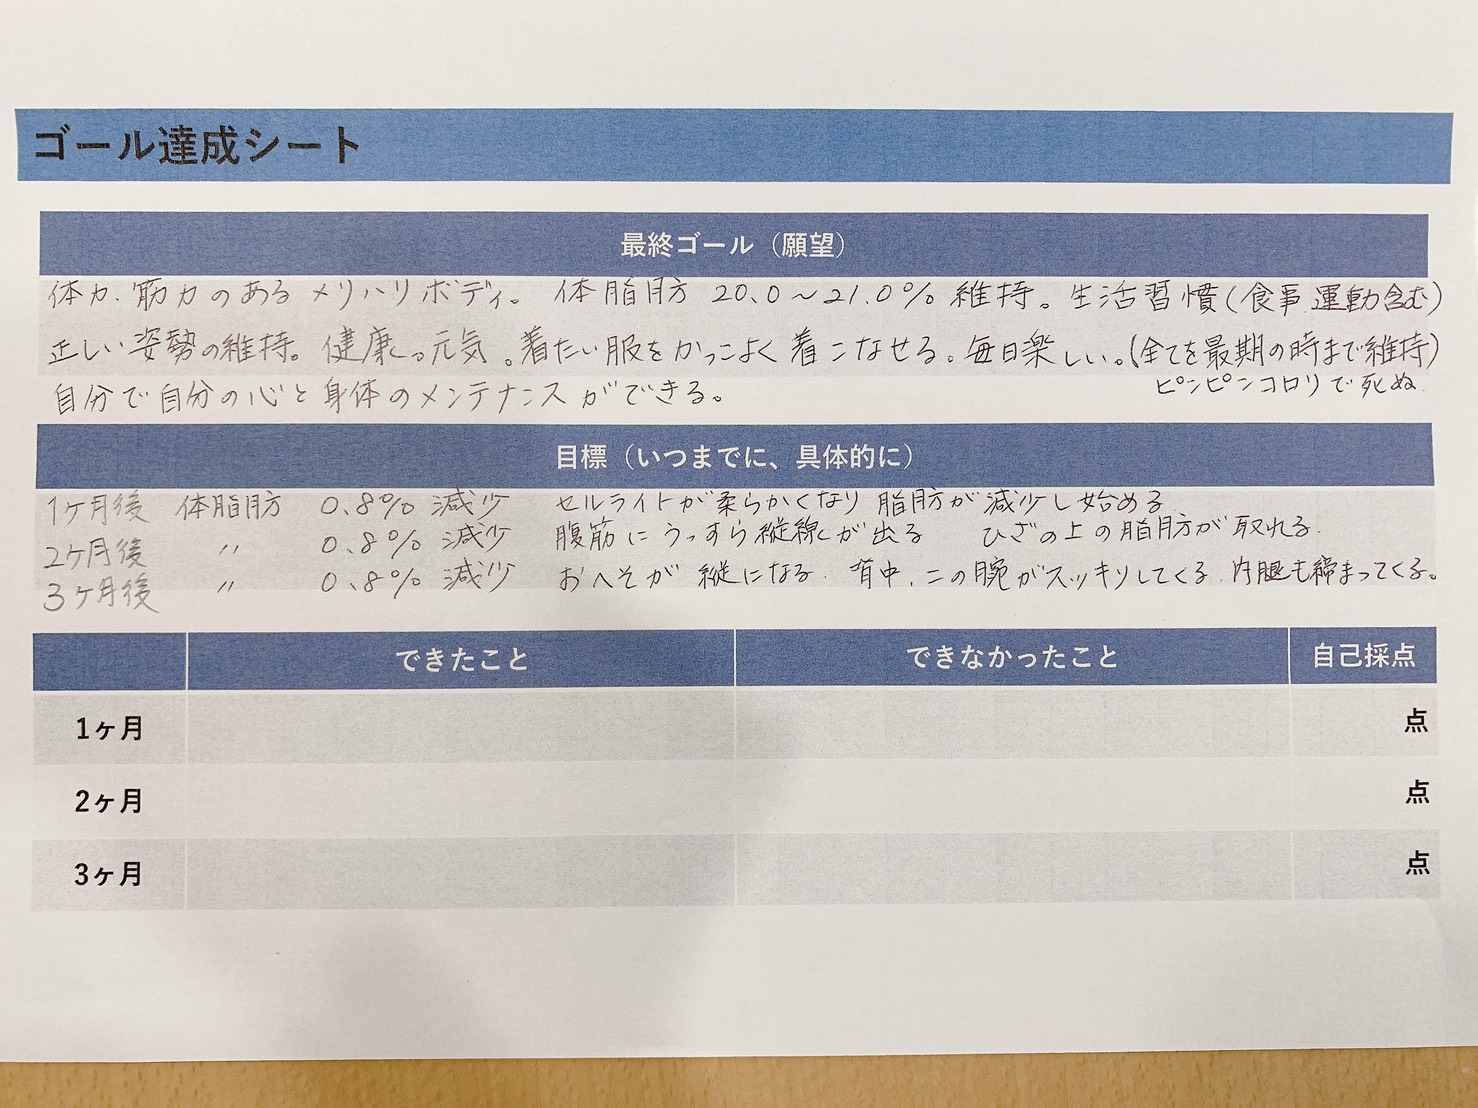 ゴール達成シート
最終ゴール（願望）
体力、筋力のあるメリハリボディ。 体脂肪 20.0～21.0% 維持。生活習慣(食事 運動含む)
正しい姿勢の維持。健康で元気。着たい服をかっこよく着こなせる。毎日楽しい。(全てを最期の時まで維持)
ピンピンコロリで死ぬ
自分で自分の心と身体のメンテナンスができる。
目標（いつまでに、具体的に）
1ヶ月後 体脂肪 0.8% 減少 セルライトが柔らかくなり 脂肪が減少し始める
2ヶ月後 〃 0.8% 減少 腹筋にうっすら縦線が出る ひざの上の脂肪が取れる.
3ヶ月後 〃 0.8% 減少 おへそが縦になる. 背中、二の腕がスッキリしてくる. 内腿も締まってくる。
できたこと できなかったこと 自己採点
1ヶ月 点
2ヶ月 点
3ヶ月 点